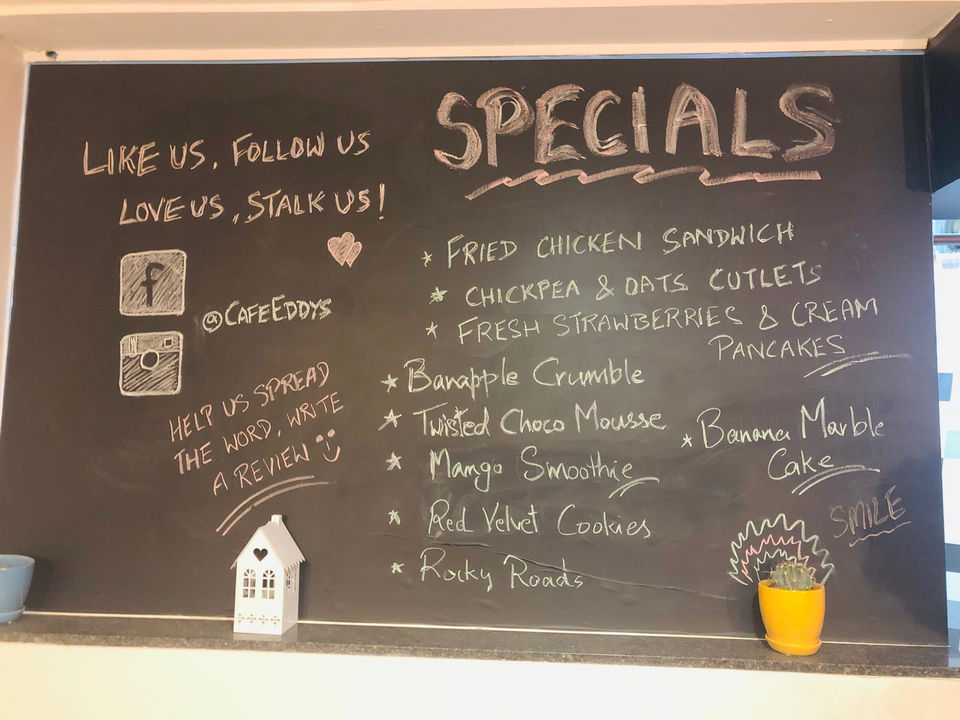 LIKE US, FOLLOW US
LOVE US, STALK US!
f
@CAFEEDDYS
HELP US SPREAD
THE WORD, WRITE
A REVIEW
SPECIALS
* FRIED CHICKEN SANDWICH
* CHICKPEA & OATS CUTLETS
* FRESH STRAWBERRIES & CREAM
PANCAKES
* Banapple Crumble
* Twisted Choco Mousse
* Mango Smoothie
* Red Velvet Cookies
* Rocky Roads
* Banana Marble
Cake
SMILE